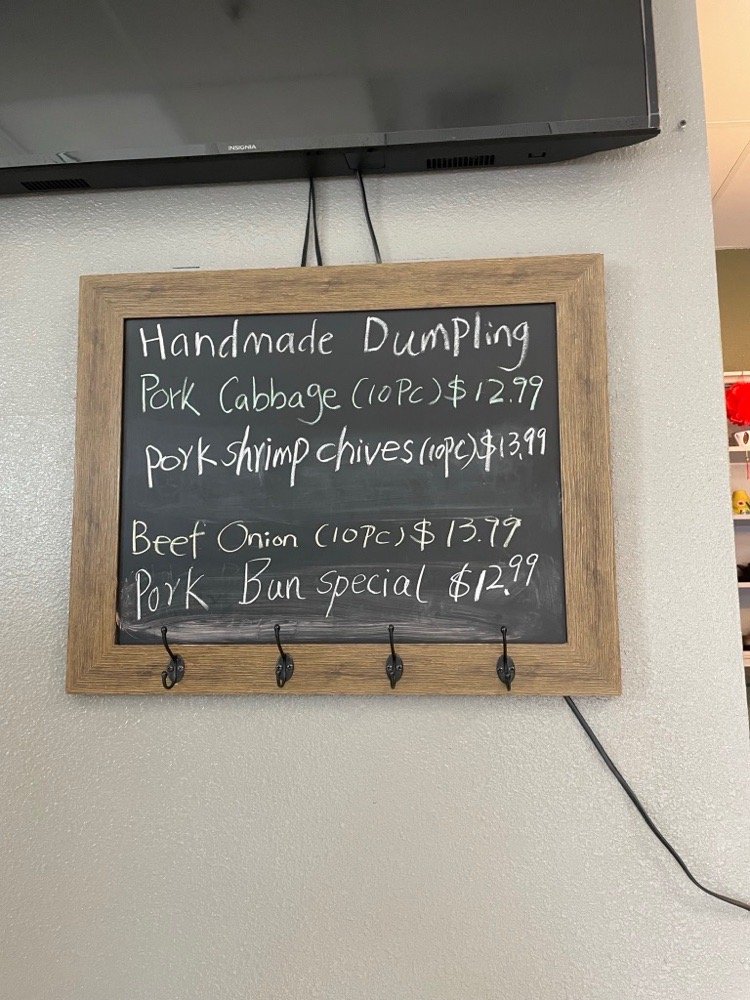 INSIGNIA
Handmade Dumpling
Pork Cabbage (10PC) $12.99
Pork shrimp chives (10PC) $13.99
Beef Onion (10PC) $13.99
Pork Bun special $12.99